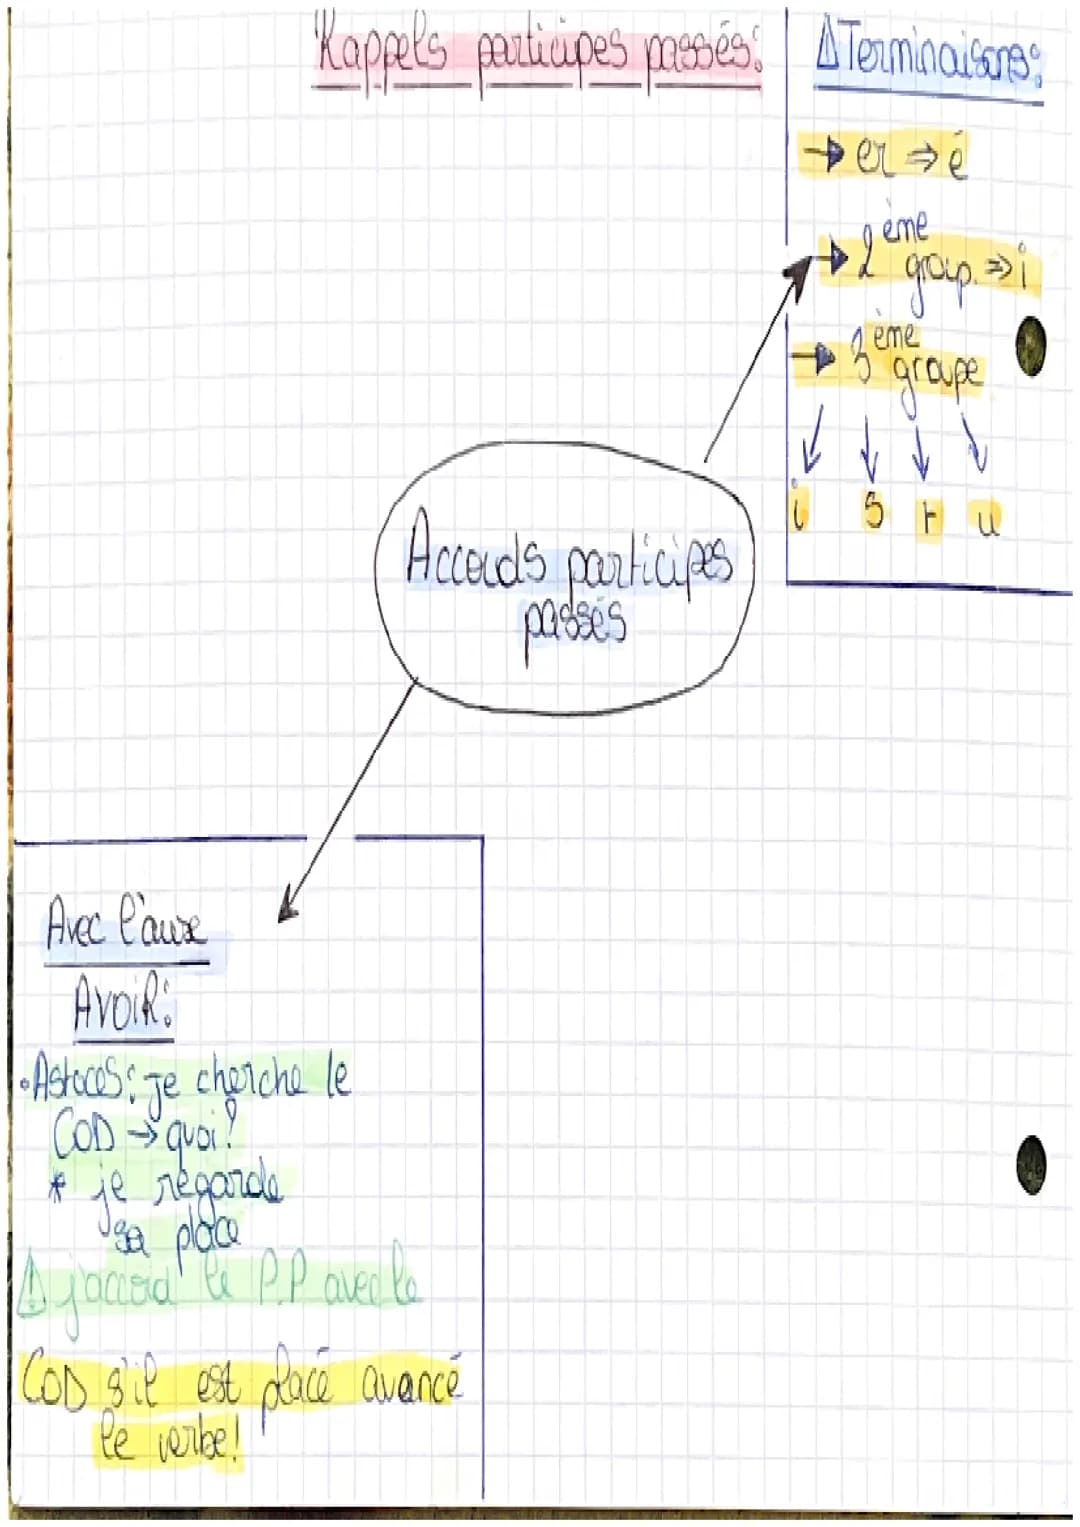 Rappels participes passés:
⚠Terminaisons:
→ er ⇒ é
→ 2ème group. ⇒ i
→ 3ème groupe
↓ ↓ ↓ ↓
i s t u
Accords participes
passés
Avec l'auxe
AVOIR:
•Astuces: je cherche le
COD → quoi?
* je regarde
sa place
⚠ j'accord le P.P avec le
COD s'il est placé avancé
le verbe!